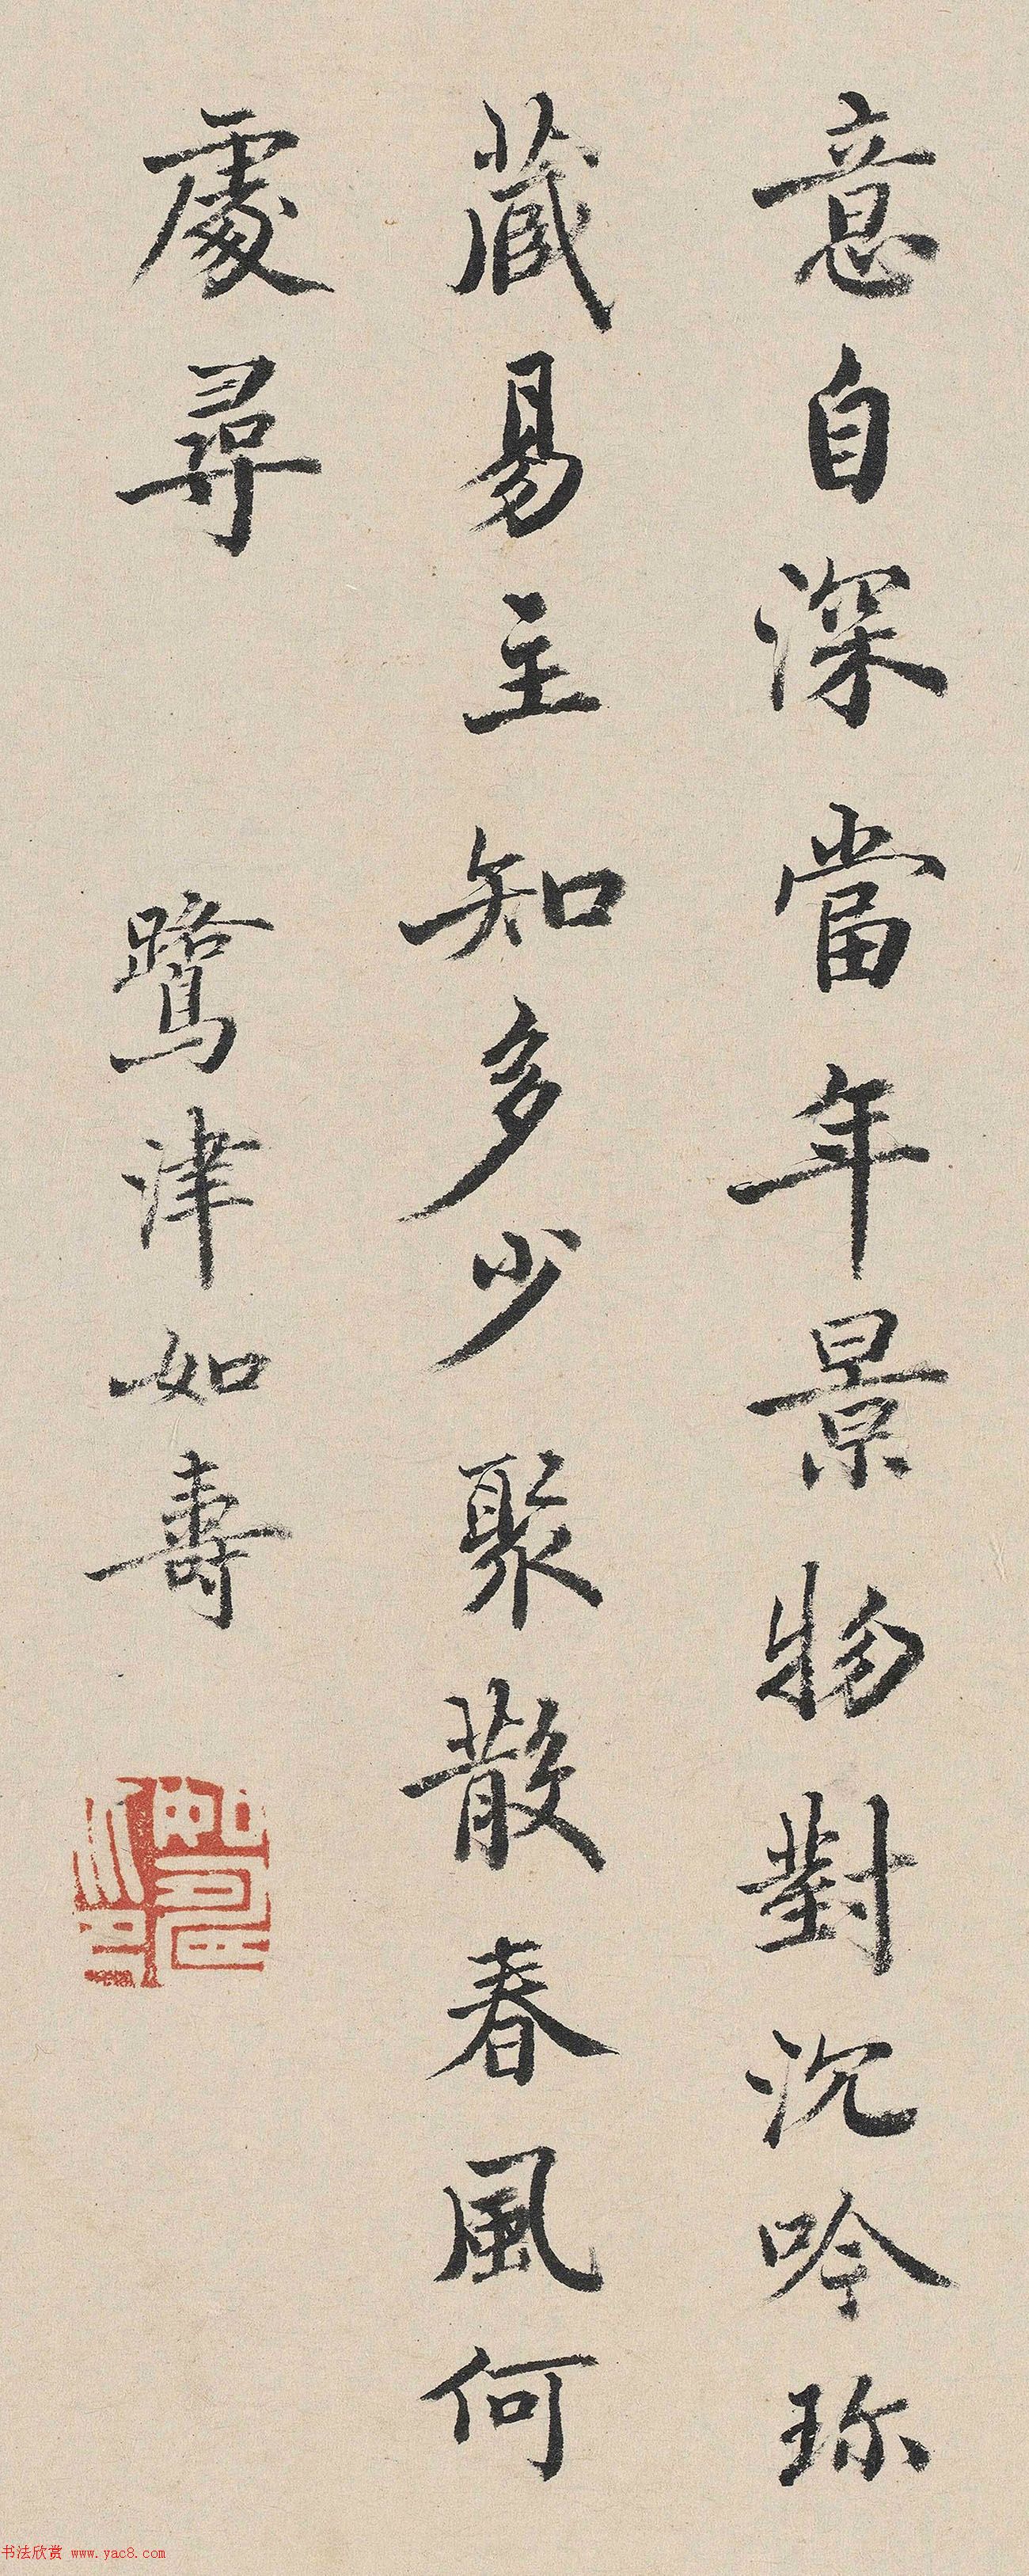 意自深當年景物對沉吟珎
藏易主知多少聚散春風何
處尋
鷺津如壽
书法欣赏 www.yac8.com